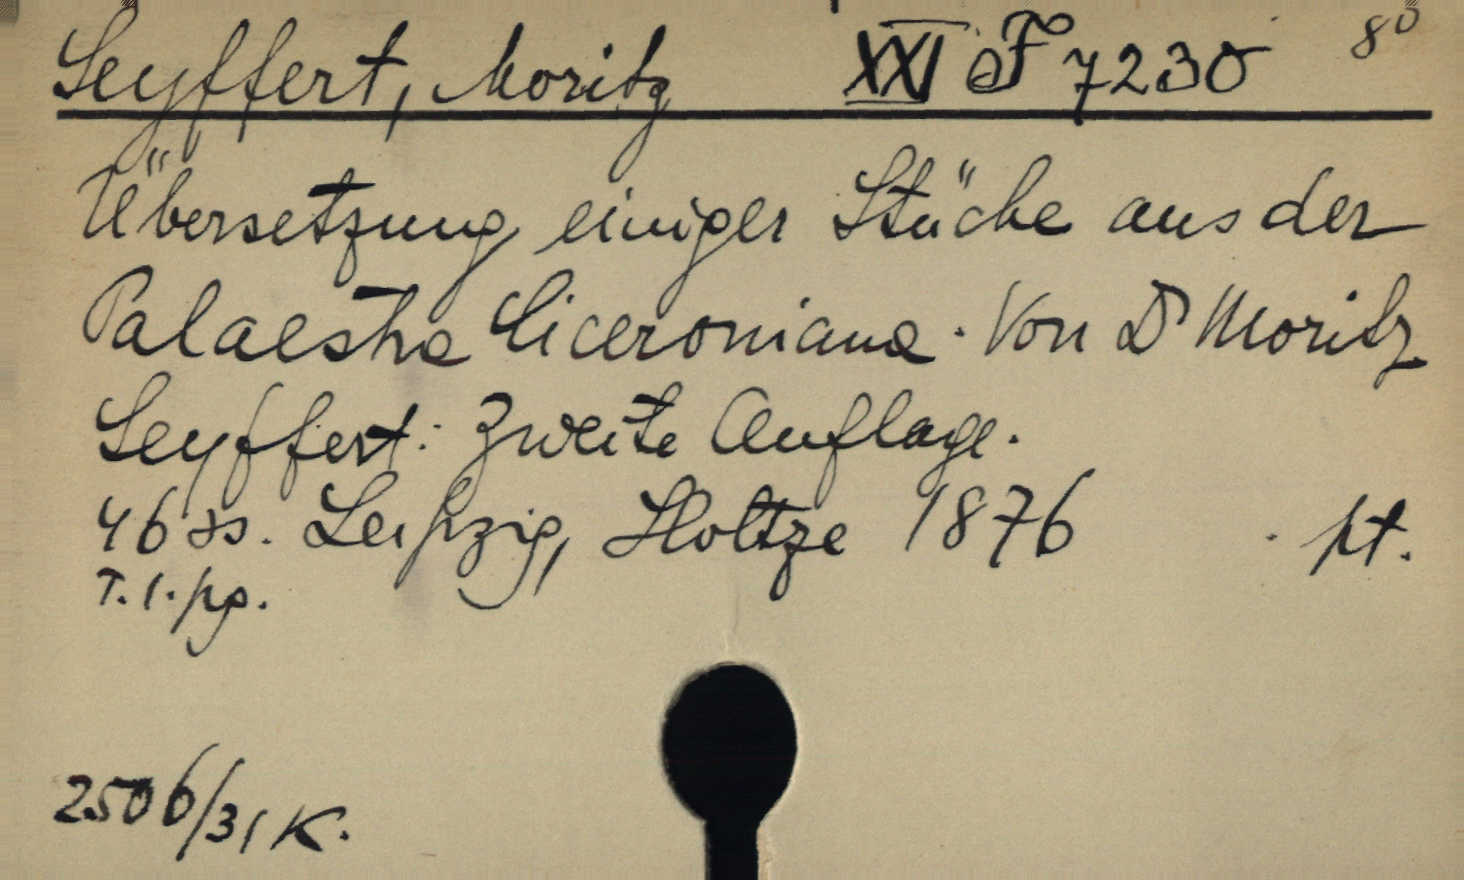 Seyffert, Moritz XXI F 7230 8°
Übersetzung einiger Stücke aus der
Palaestra Ciceroniana. Von Dr Moritz
Seyffert. Zweite Auflage.
46 ss. Leipzig, Holtze 1876 pt.
T. 1. pg.
2506/31 K.